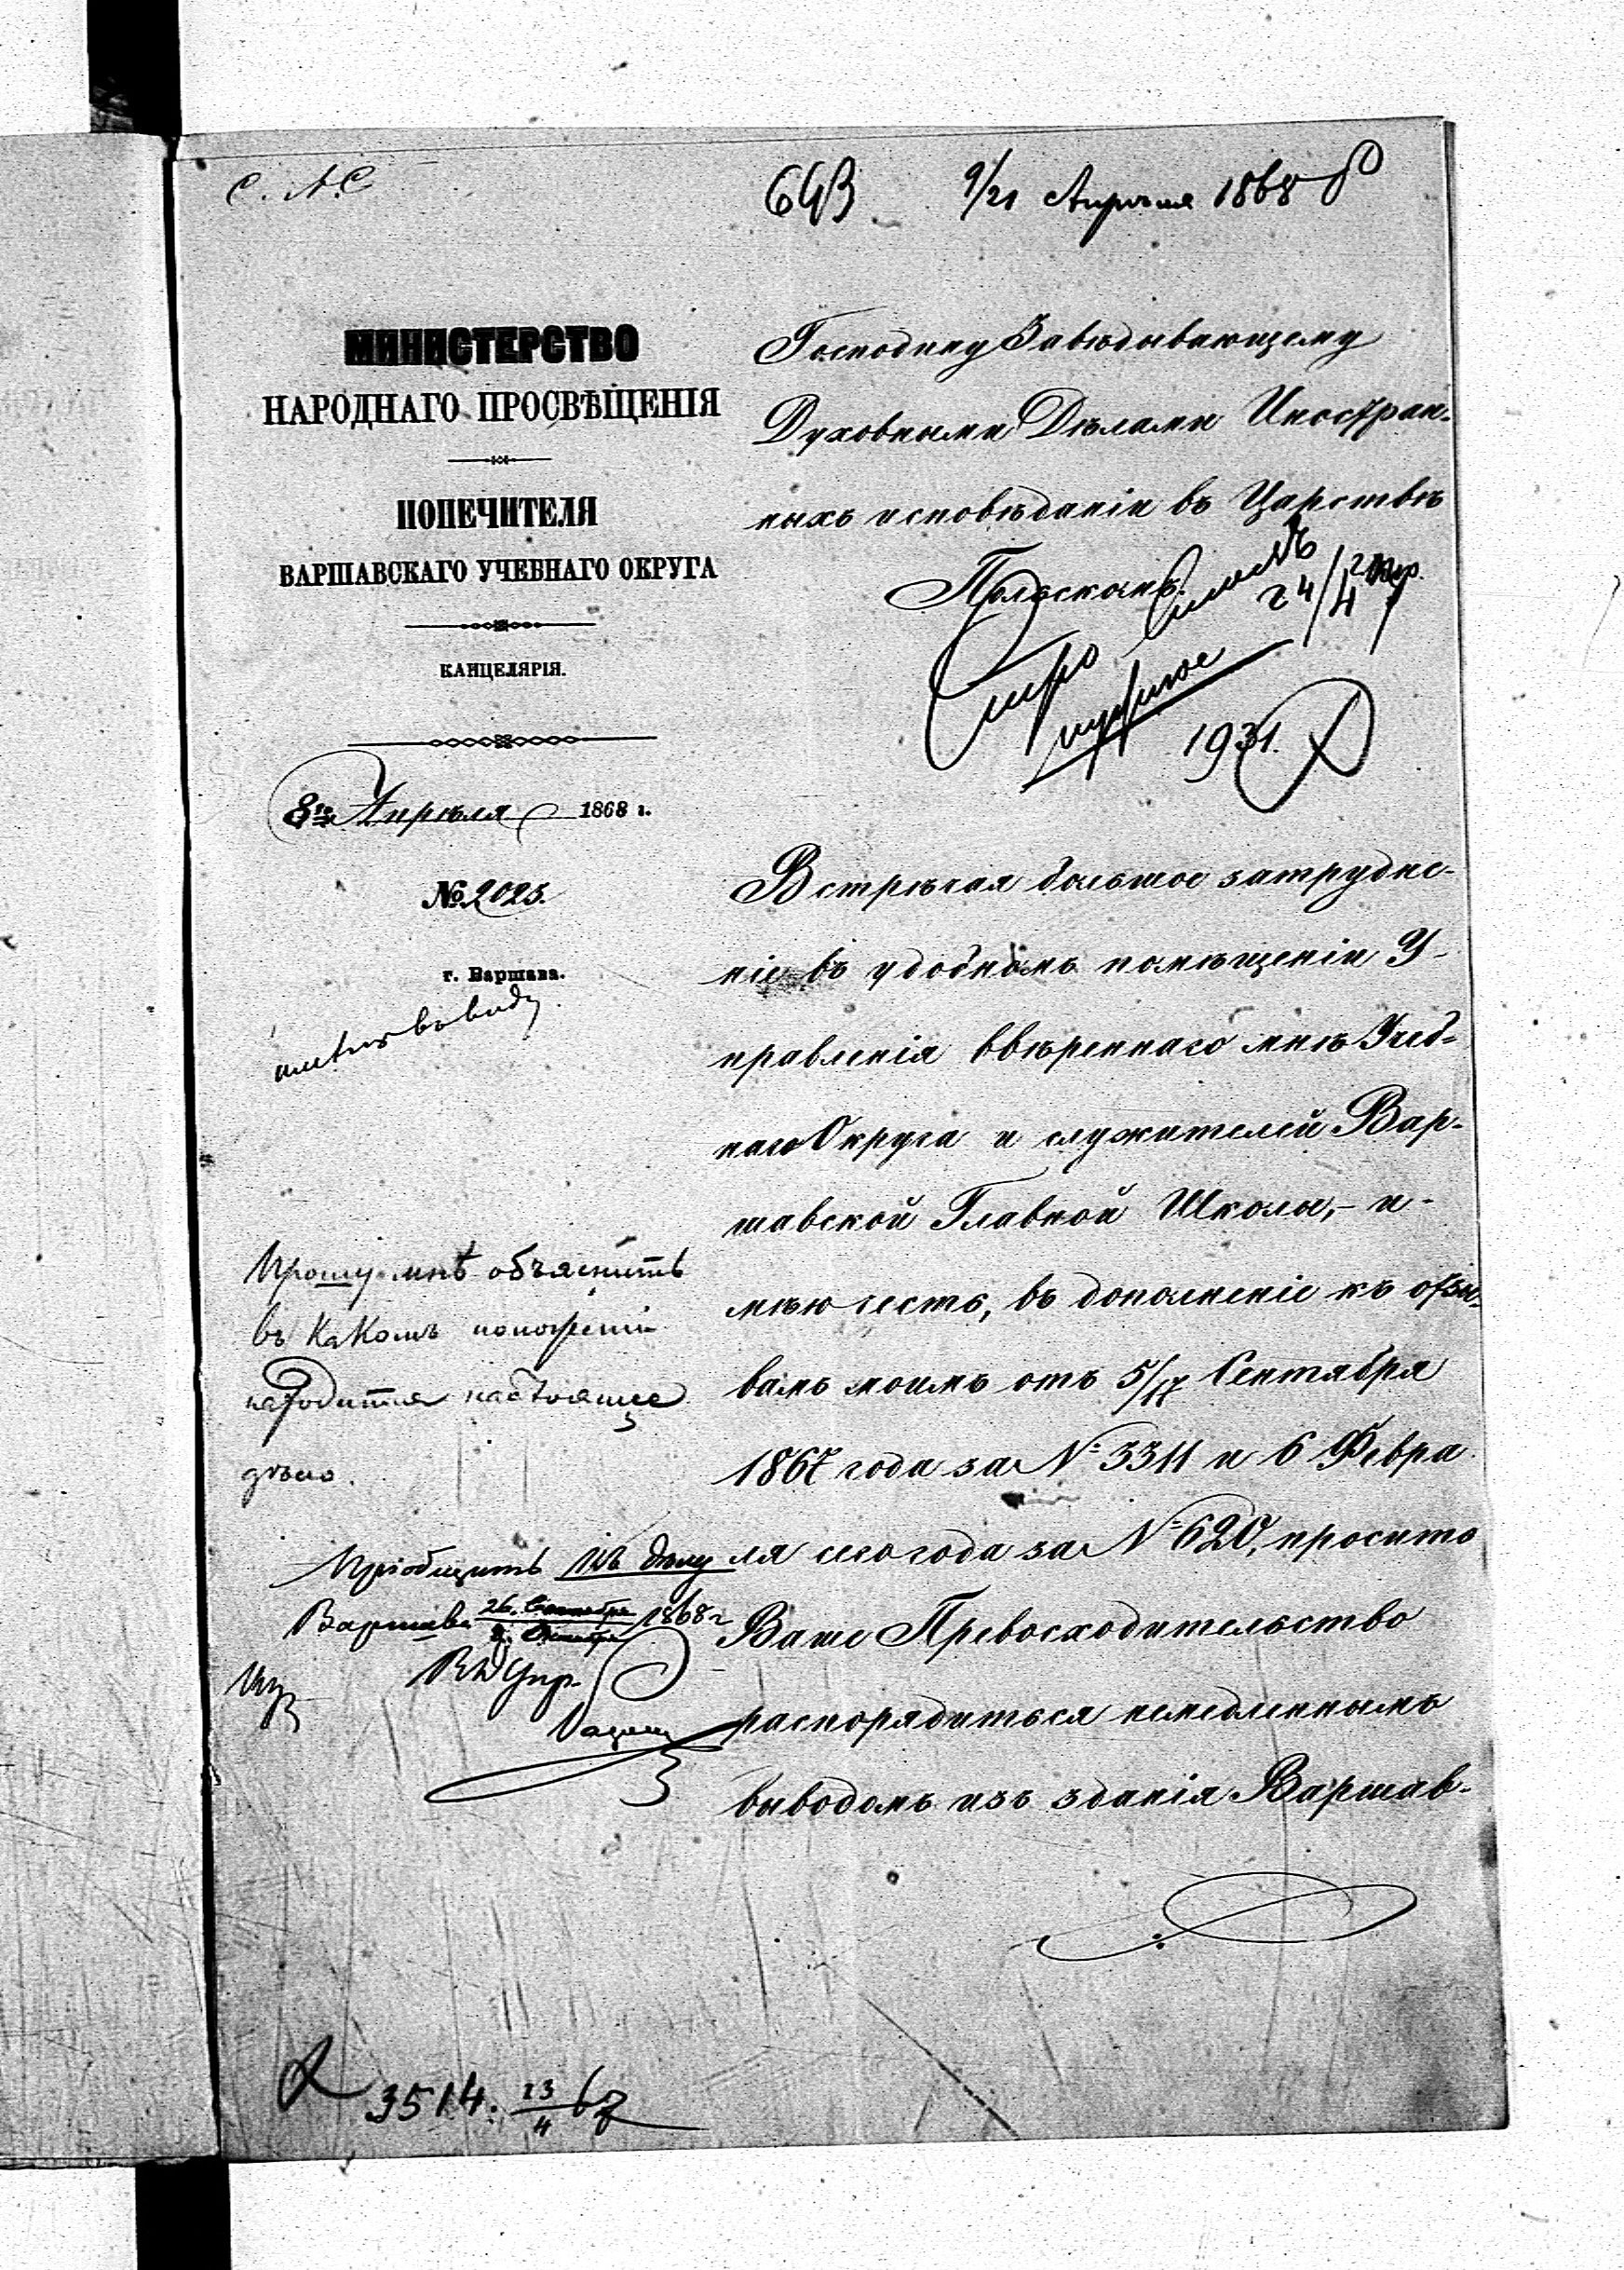 С. А. С
643 9/21 Апрѣля 1868
МИНИСТЕРСТВО
НАРОДНАГО ПРОСВѢЩЕНІЯ
ПОПЕЧИТЕЛЯ
ВАРШАВСКАГО УЧЕБНАГО ОКРУГА
КАНЦЕЛЯРІЯ.
8го Апрѣля 1868 г.
№ 2025.
г. Варшава.
имѣть въ виду
Господину Завѣдывающему
Духовными Дѣлами Иностран-
ныхъ исповѣданій въ Царствѣ
Польскомъ.
24/4
1931.
Встрѣчая большое затрудне-
ніе въ удобномъ помѣщеніи У-
правленія ввѣреннаго мнѣ Учеб-
наго Округа и служителей Вар-
шавской Главной Школы, - и-
мѣю честь, въ дополненіе къ отзы-
вамъ моимъ отъ 5/17 Сентября
1867 года за № 3311 и 6 Февра
ля сего года за № 620, просить
Ваше Превосходительство
распорядиться немедленнымъ
выводомъ изъ зданія Варшав-
Прошу мнѣ объяснить
въ какомъ положеніи
находится настоящее
дѣло.
Пріобщить къ дѣлу
Варшава 26 Сентября/8 Октября 1868 г
Упр.
3514. 23/4 68